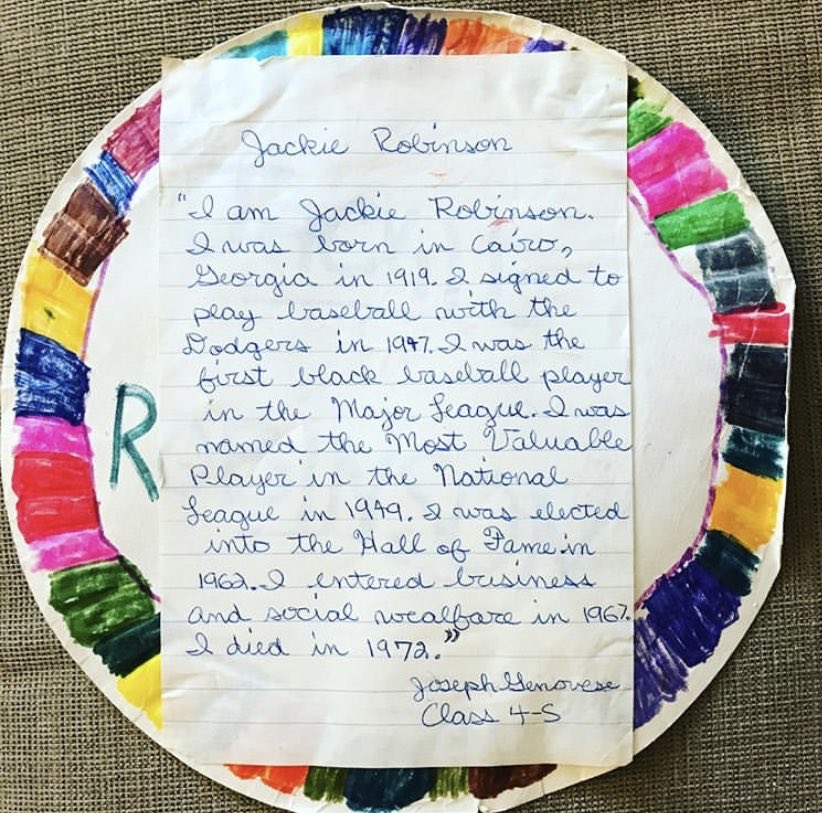 Jackie Robinson
"I am Jackie Robinson.
I was born in Cairo,
Georgia in 1919. I signed to
play baseball with the
Dodgers in 1947. I was the
first black baseball player
in the Major League. I was
named the Most Valuable
Player in the National
League in 1949. I was elected
into the Hall of Fame in
1962. I entered business
and social wealfare in 1967.
I died in 1972."
Joseph Genovese
Class 4-S
R